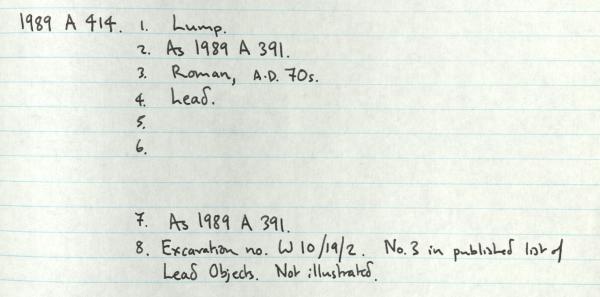 1989 A 414. 1. Lump.
2. As 1989 A 391.
3. Roman, A.D. 70s.
4. Lead.
5.
6.
7. As 1989 A 391.
8. Excavation no. W10/19/2. No. 3 in published list of
Lead Objects. Not illustrated.